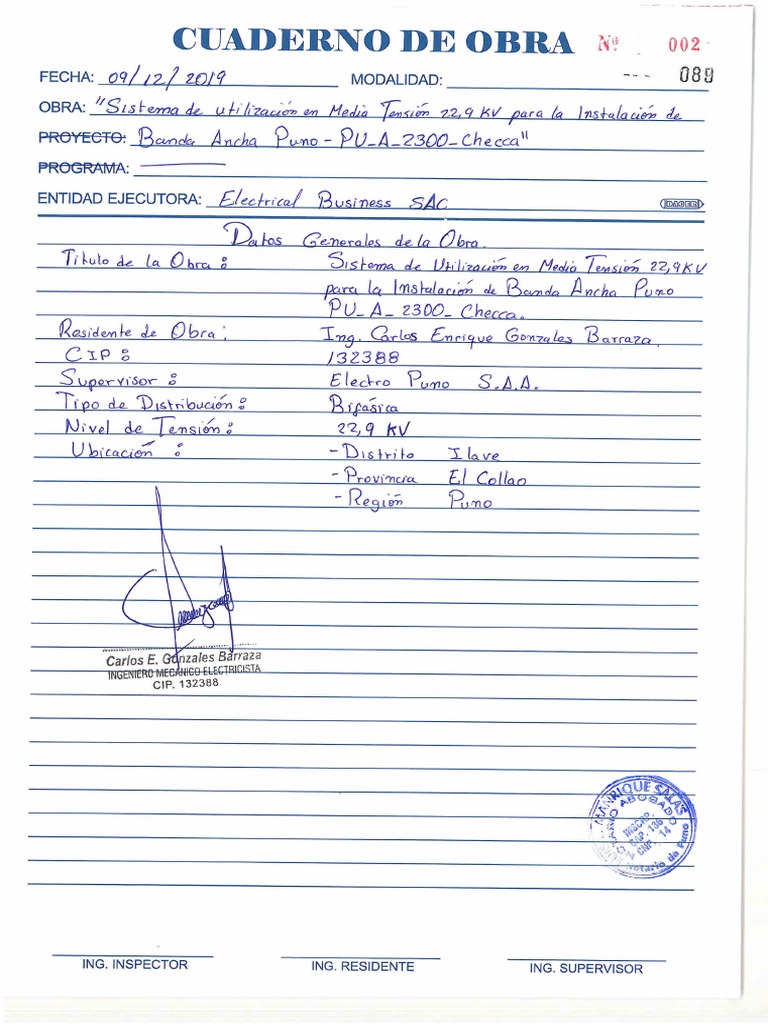 CUADERNO DE OBRA Nº 002
FECHA: 09/12/2019 MODALIDAD: --- 089
OBRA: "Sistema de utilización en Media Tensión 22,9 KV para la Instalación de
PROYECTO: Banda Ancha Puno - PU_A_2300_Checca"
PROGRAMA:
ENTIDAD EJECUTORA: Electrical Business SAC DAGER
Datos Generales de la Obra.
Titulo de la Obra: Sistema de Utilización en Media Tensión 22,9KV
para la Instalación de Banda Ancha Puno
PU_A_2300_Checca.
Residente de Obra: Ing. Carlos Enrique Gonzales Barraza.
CIP: 132388
Supervisor: Electro Puno S.A.A.
Tipo de Distribución: Bifásica
Nivel de Tensión: 22,9 KV
Ubicación: - Distrito Ilave
- Provincia El Collao
- Región Puno
Carlos E. Gonzales Barraza
INGENIERO MECÁNICO ELECTRICISTA
CIP. 132388
MANRIQUE SALAS
ABOGADO
INSCRIP.
CAP. 136
CNP. 14
Notario de Puno
ING. INSPECTOR
ING. RESIDENTE
ING. SUPERVISOR